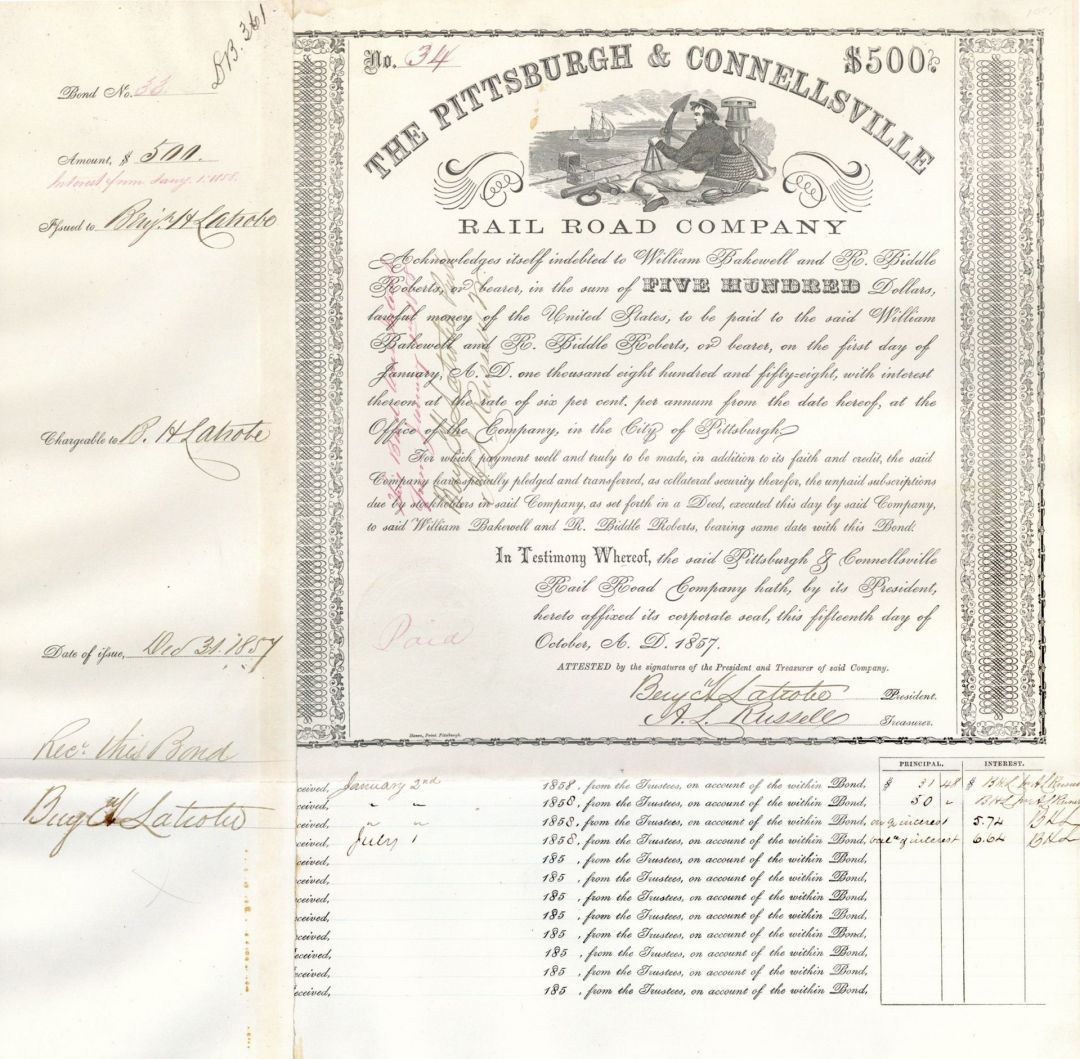 DB. 361
Bond No. 33.
Amount, $ 500.
Interest from Jany. 1. 1858.
Issued to Benj. H Latrobe
Chargeable to B. H Latrobe
Date of issue, Dec 31. 1857
Recd. this Bond
Benj H Latrobe
No. 34
$500
THE PITTSBURGH & CONNELLSVILLE
RAIL ROAD COMPANY
Acknowledges itself indebted to William Bakewell and R. Biddle
Roberts, or bearer, in the sum of FIVE HUNDRED Dollars,
lawful money of the United States, to be paid to the said William
Bakewell and R. Biddle Roberts, or bearer, on the first day of
January, A. D. one thousand eight hundred and fifty-eight, with interest
thereon at the rate of six per cent. per annum from the date hereof, at the
Office of the Company, in the City of Pittsburgh,
For which payment well and truly to be made, in addition to its faith and credit, the said
Company have specially pledged and transferred, as collateral security therefor, the unpaid subscriptions
due by stockholders in said Company, as set forth in a Deed, executed this day by said Company,
to said William Bakewell and R. Biddle Roberts, bearing same date with this Bond.
In Testimony Whereof, the said Pittsburgh & Connellsville
Rail Road Company hath, by its President,
hereto affixed its corporate seal, this fifteenth day of
October, A. D. 1857.
Paid
ATTESTED by the signatures of the President and Treasurer of said Company.
Benj H Latrobe President.
A. L. Russell Treasurer.
Haven, Print. Pittsburgh.
PRINCIPAL. INTEREST.
ceived, January 2nd 1858, from the Trustees, on account of the within Bond, $ 31 48 $ BHL
ceived, " " 1858, from the Trustees, on account of the within Bond, 50 " BHL
ceived, " " 1858, from the Trustees, on account of the within Bond, interest 5.72 BHL
ceived, July 1 1858, from the Trustees, on account of the within Bond, interest 6.62 BHL
ceived, 185 , from the Trustees, on account of the within Bond,
ceived, 185 , from the Trustees, on account of the within Bond,
ceived, 185 , from the Trustees, on account of the within Bond,
ceived, 185 , from the Trustees, on account of the within Bond,
ceived, 185 , from the Trustees, on account of the within Bond,
eceived, 185 , from the Trustees, on account of the within Bond,
eceived, 185 , from the Trustees, on account of the within Bond,
eceived, 185 , from the Trustees, on account of the within Bond,